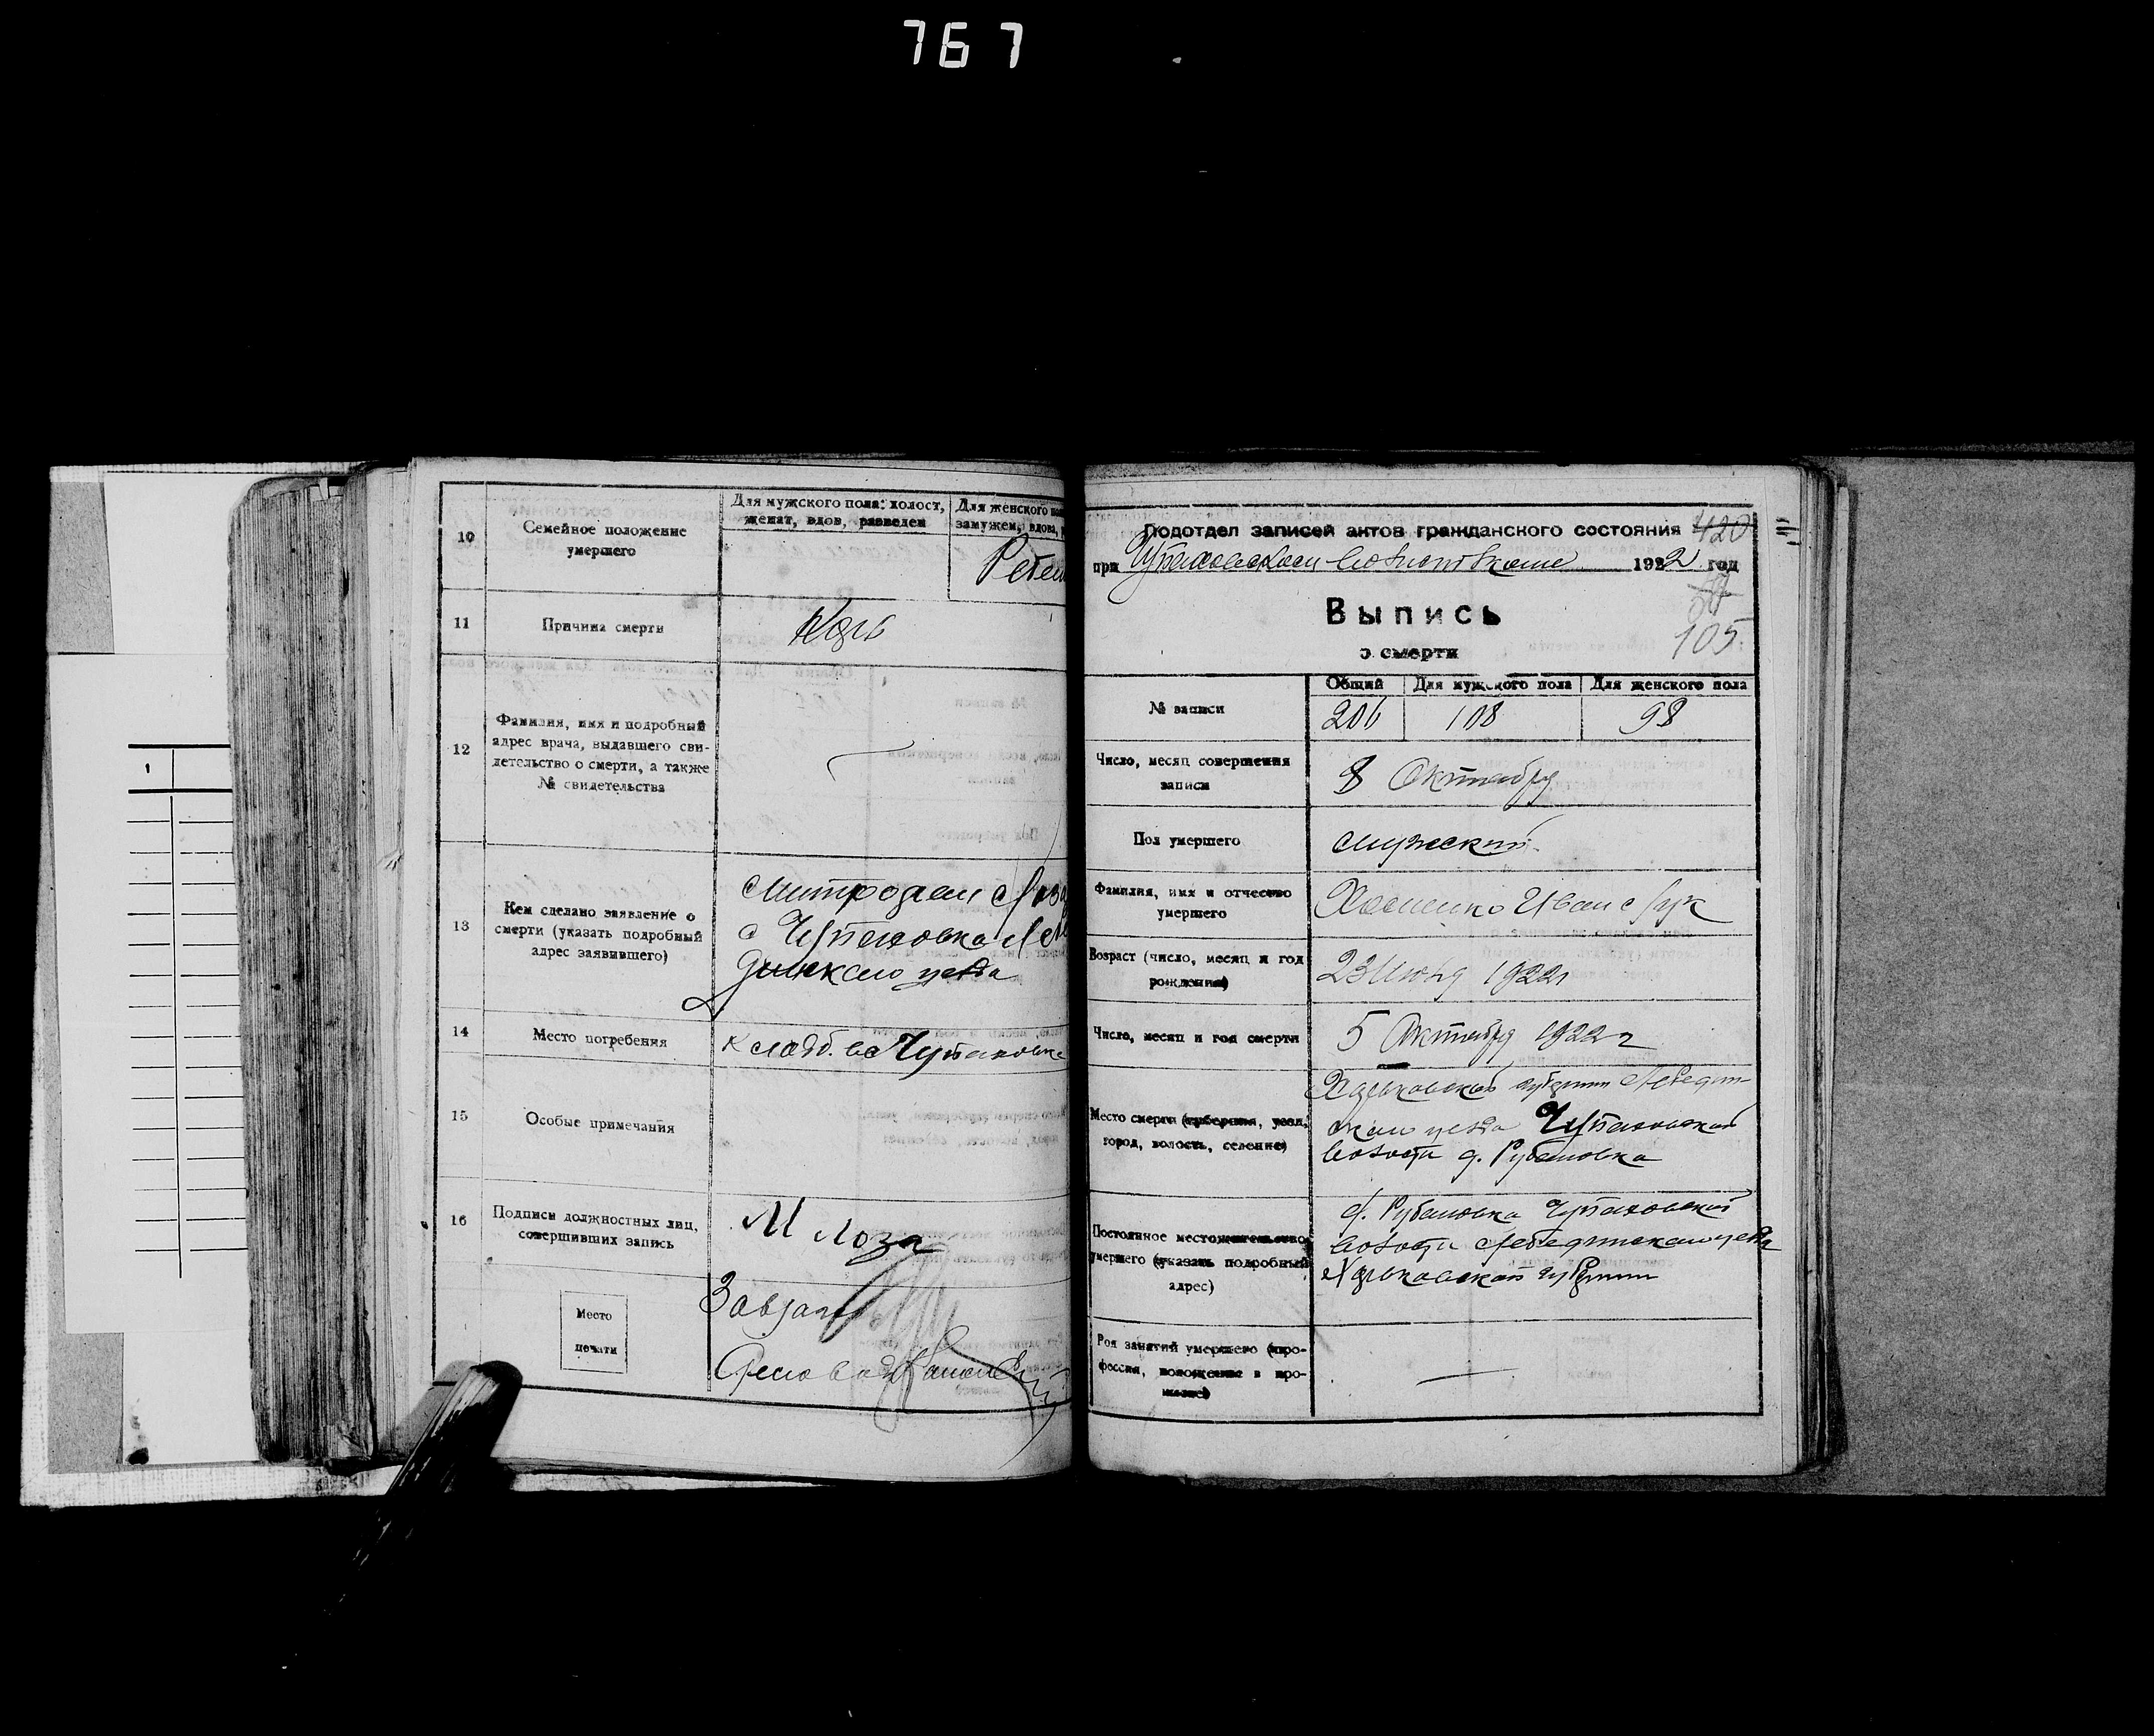 767
10
Семейное положение
умершего
Для мужского пола: холост,
женат, вдов, разведен
Для женского
замужем, вдова,
11
Причина смерти
Корь
12
Фамилия, имя и подробный
адрес врача, выдавшего сви-
детельство о смерти, а также
№ свидетельства
13
Кем сделано заявление о
смерти (указать подробный
адрес заявившего)
Митрофан Лоза
с Чупаховка Леб
динского уезда
14
Место погребения
кладб. в с Чупаховке
15
Особые примечания
16
Подписи должностных лиц,
совершивших запись
М Лоза
Место
печати
1
Подотдел записей актов гражданского состояния 420
при Чупаховском волисполкоме 1922 год
Выпись
105
о смерти
№ записи
Общий
Для мужского пола
Для женского пола
206
108
98
Число, месяц совершения
записи
8 Октября
Пол умершего
мужеский
Фамилия, имя и отчество
умершего
Иван Лук
Возраст (число, месяц и год
рождения)
23 1922
Число, месяц и год смерти
5 Октября 1922 г
Место смерти (губерния, уезд,
город, волость, селение)
Харьковской губернии Лебедин-
ского уезда Чупаховской
волости д. Рубановка
Постоянное местожительство
умершего (указать подробный
адрес)
д. Рубановка Чупаховской
волости Лебединского уезда
Харьковской губернии
Род занятий умершего (про-
фессия, положение в про-
мысле)